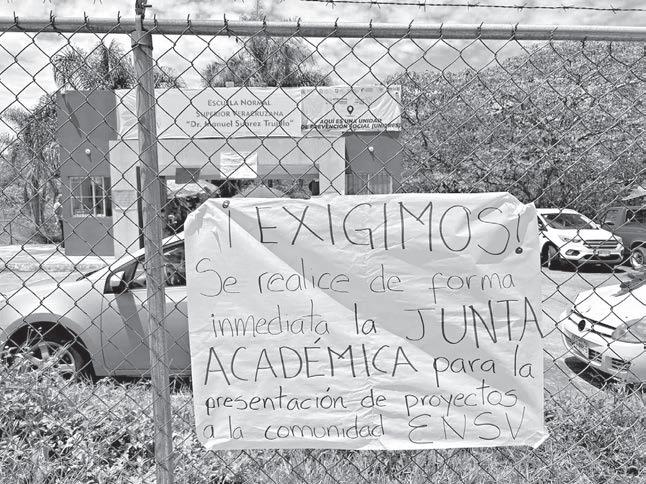 ESCUELA NORMAL
SUPERIOR VERACRUZANA
"Dr. Manuel Suárez Trujillo"
AQUÍ ES UNA UNIDAD
DE PREVENCIÓN SOCIAL
¡EXIGIMOS!
Se realice de forma
inmediata la JUNTA
ACADÉMICA para la
presentación de proyectos
a la comunidad ENSV